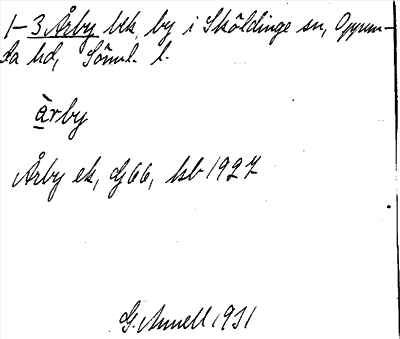 1-3 Årby bek, by i Sköldinge sn, Oppun-
da hd, Söml. l.
àrby
Årby ek, G66, hsb 1927
G. Annell 1931